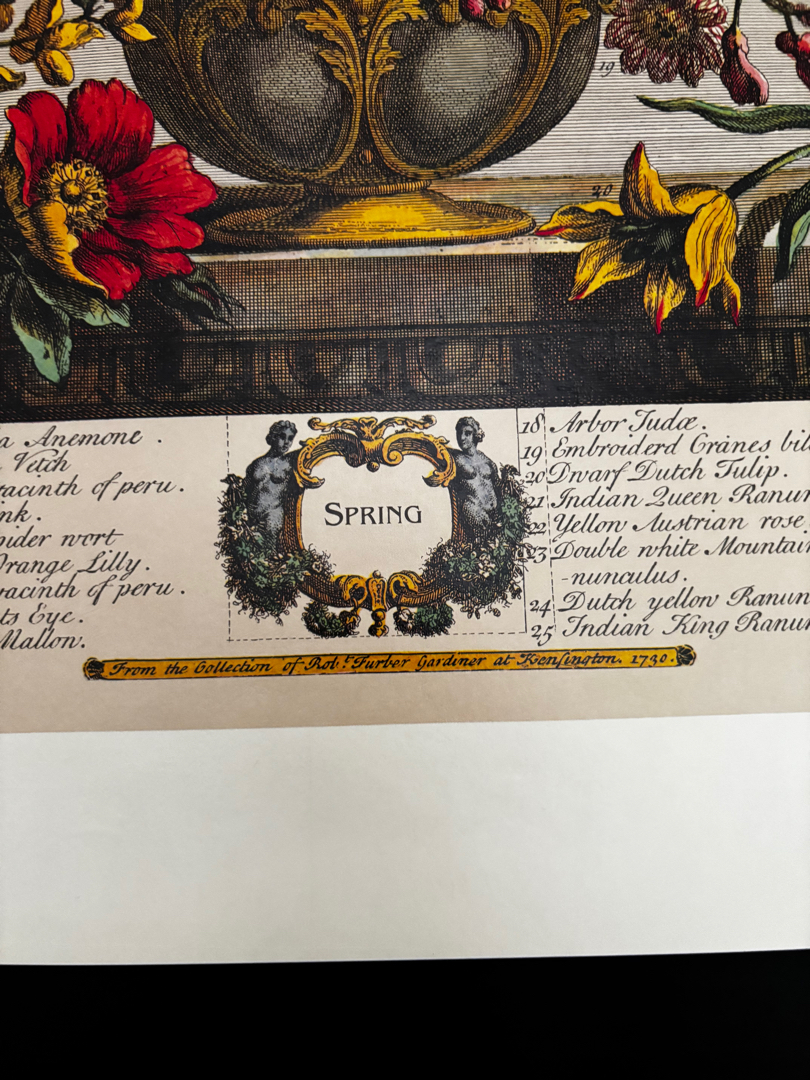 19
20
a Anemone .
Vetch
racinth of peru .
nk .
pider wort
Orange Lilly .
racinth of peru .
ts Eye .
Mallow .
SPRING
18 Arbor Judæ .
19 Embroiderd Cranes bil
20 Dwarf Dutch Tulip .
21 Indian Queen Ranun
22 Yellow Austrian rose
23 Double white Mountain
-nunculus .
24 Dutch yellow Ranun
25 Indian King Ranun
From the Collection of Rob.t Furber Gardiner at Kensington . 1730 .